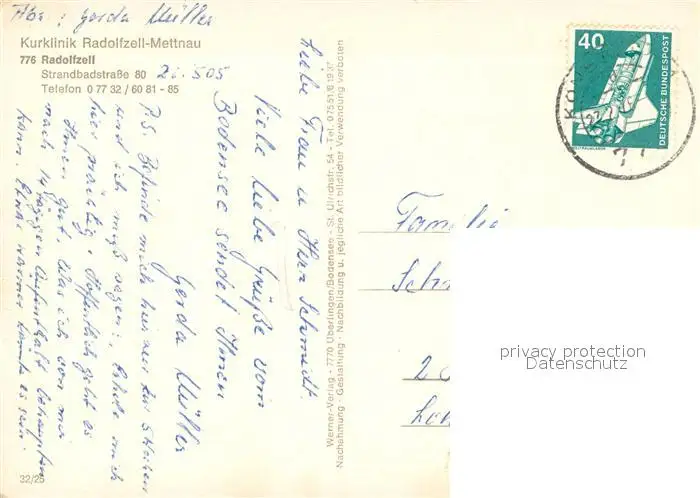 Abs: Gerda Müller
Kurklinik Radolfzell-Mettnau
776 Radolfzell
Strandbadstraße 80
Zi. 505
Telefon 0 77 32 / 60 81 - 85
Liebe Frau u Herr Schmidt.
Viele liebe Grüße vom
Bodensee sendet Ihnen
Gerda Müller
P.S. Befinde mich hier zur Kur
und ich muß sagen:, erhole mich
hier prächtig. Hoffentlich geht es
Ihnen gut, was ich von mir
nach 14 tägigen Aufenthalt behaupten
kann. Etwas wärmer könnte es sein.
32/25
Werner-Verlag - 7770 Überlingen/Bodensee - St. Ulrichstr. 54 - Tel. 07551/61937
Nachahmung - Gestaltung - Nachbildung u. jegliche Art bildlicher Verwendung verboten
40
DEUTSCHE BUNDESPOST
Familie
privacy protection
Datenschutz